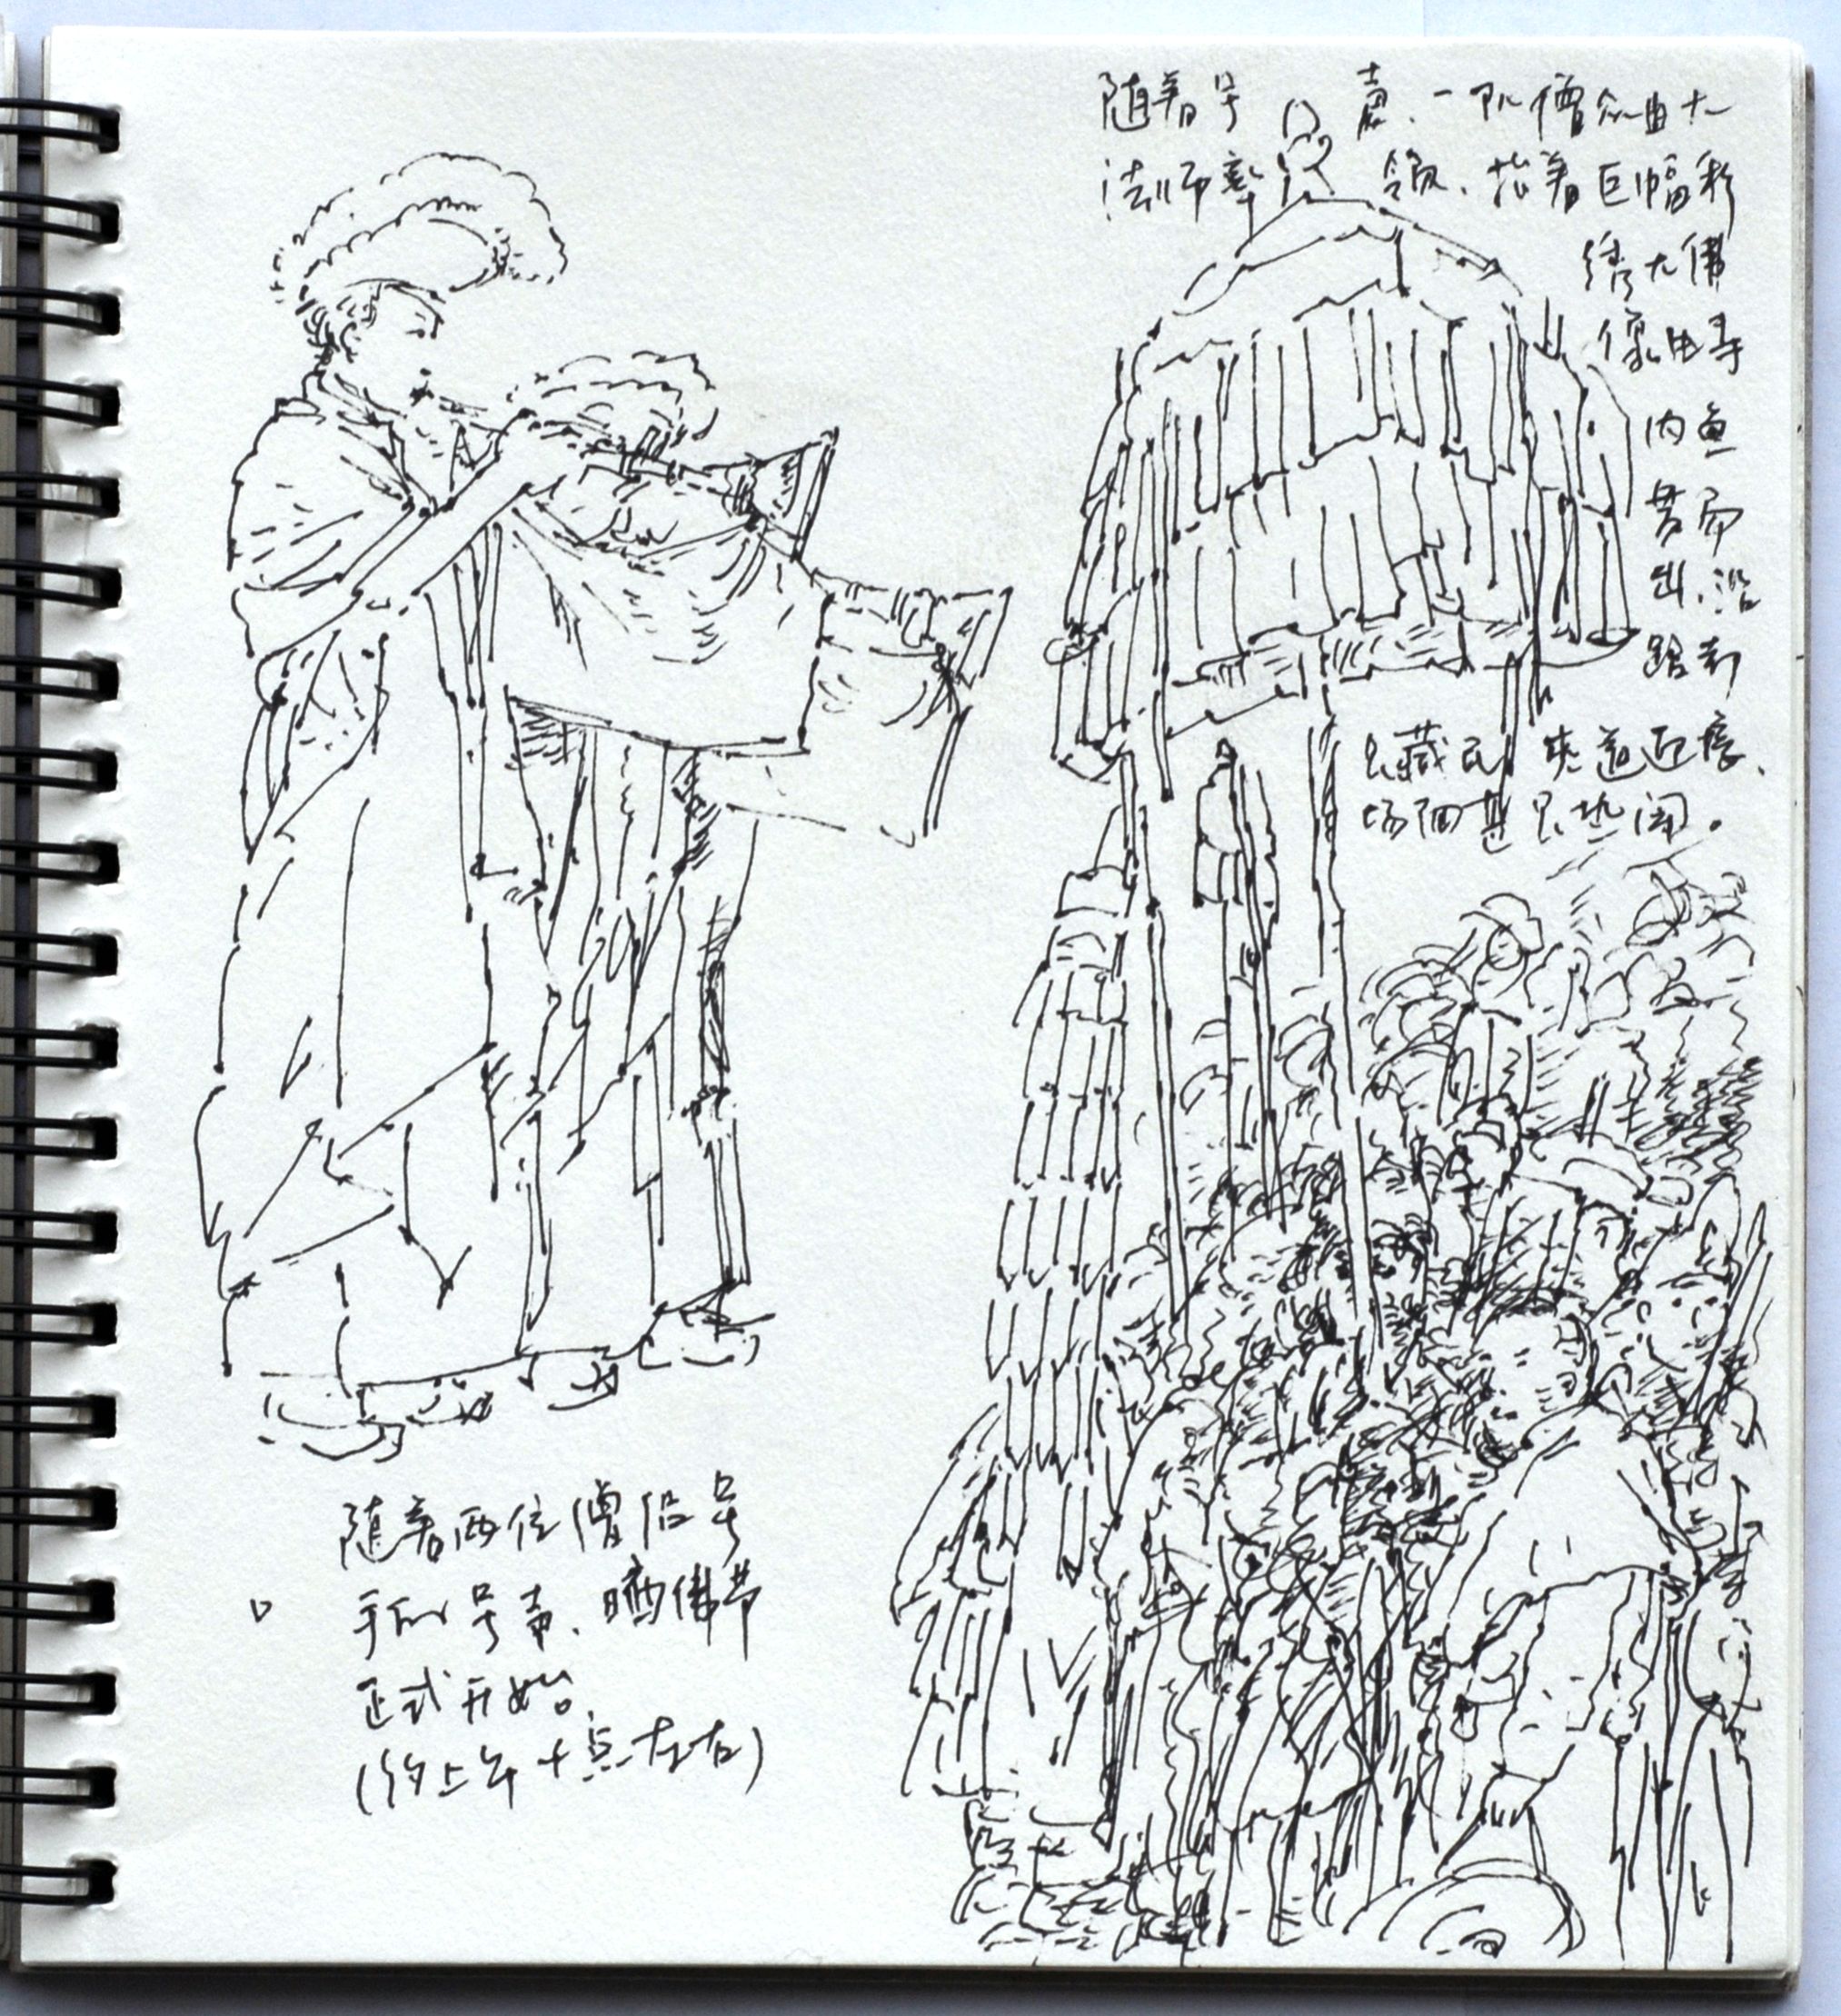 随着号声、一队僧众由大
法师率领、抬着巨幅彩
绣大佛
像由寺
内鱼
贯而
出.沿
路村
民藏民夹道迎接、
场面甚是热闹。
随着两位僧侣号
手的号声、晒佛节
正式开始.
(约上午十点左右)